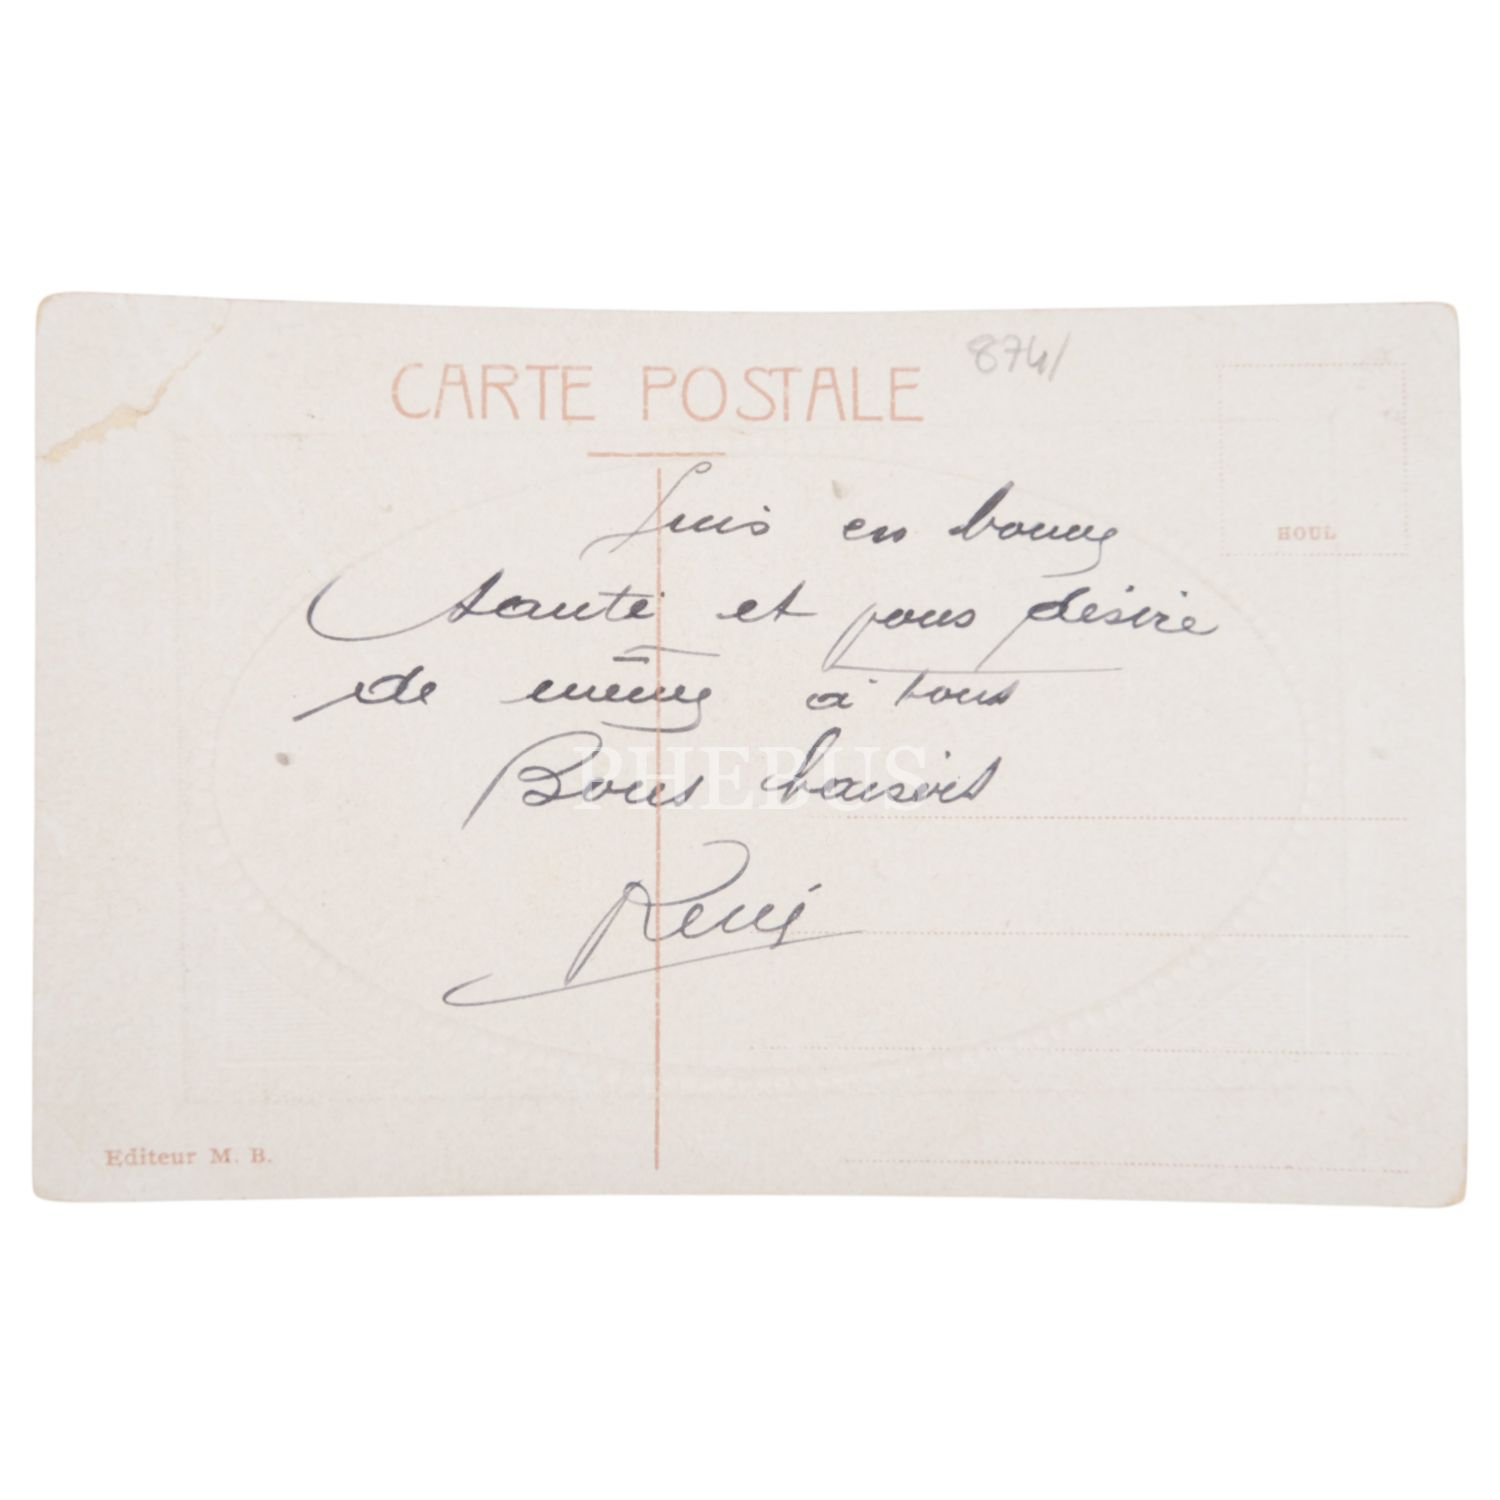 CARTE POSTALE
874/
HOUL
Suis en bonne
santé et vous désire
de même à tous
Bons baisers
René
PHEBUS
Editeur M. B.